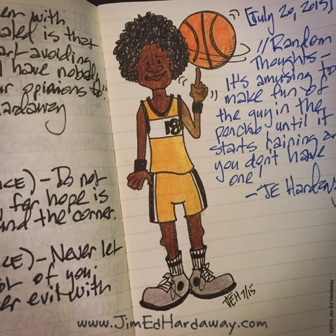 en with
aled is that
art avoiding
I have nobody
ur opinions to
Hardaway
NCE) - Do not
for hope is
und the corner.
NCE) - Never let
st of you.
er evil with
[July 20, 2015]
//Random
Thoughts-
It's amusing to
make fun of
the guy in the
poncho until it
starts raining and
you don't have
one.
-JE Hardaway
JEH 7/15
www.JimEdHardaway.com